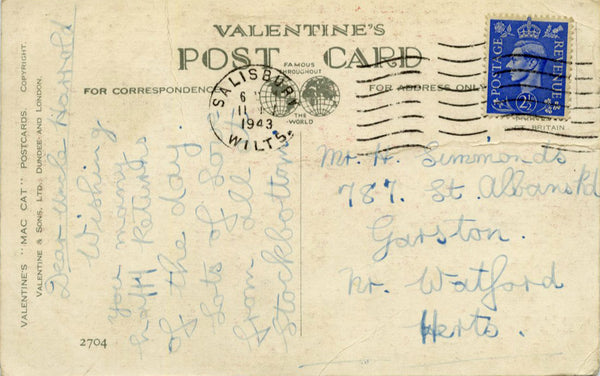 VALENTINE'S
POST CARD
FAMOUS
THROUGHOUT
THE
WORLD
FOR CORRESPONDENCE
FOR ADDRESS ONLY
SALISBURY
6
11
1943
WILTS.
POSTAGE
REVENUE
2½
BRITAIN
VALENTINE'S "MAC CAT" POSTCARDS. COPYRIGHT.
VALENTINE & SONS, LTD., DUNDEE AND LONDON.
2704
Dear Uncle Harrold
Wishing
you many
happy Returns
of the day.
Lots of Love
from all
Stockbottom
Mr. H. Simmonds
787. St. Albans Rd
Garston.
Nr. Watford
Herts.